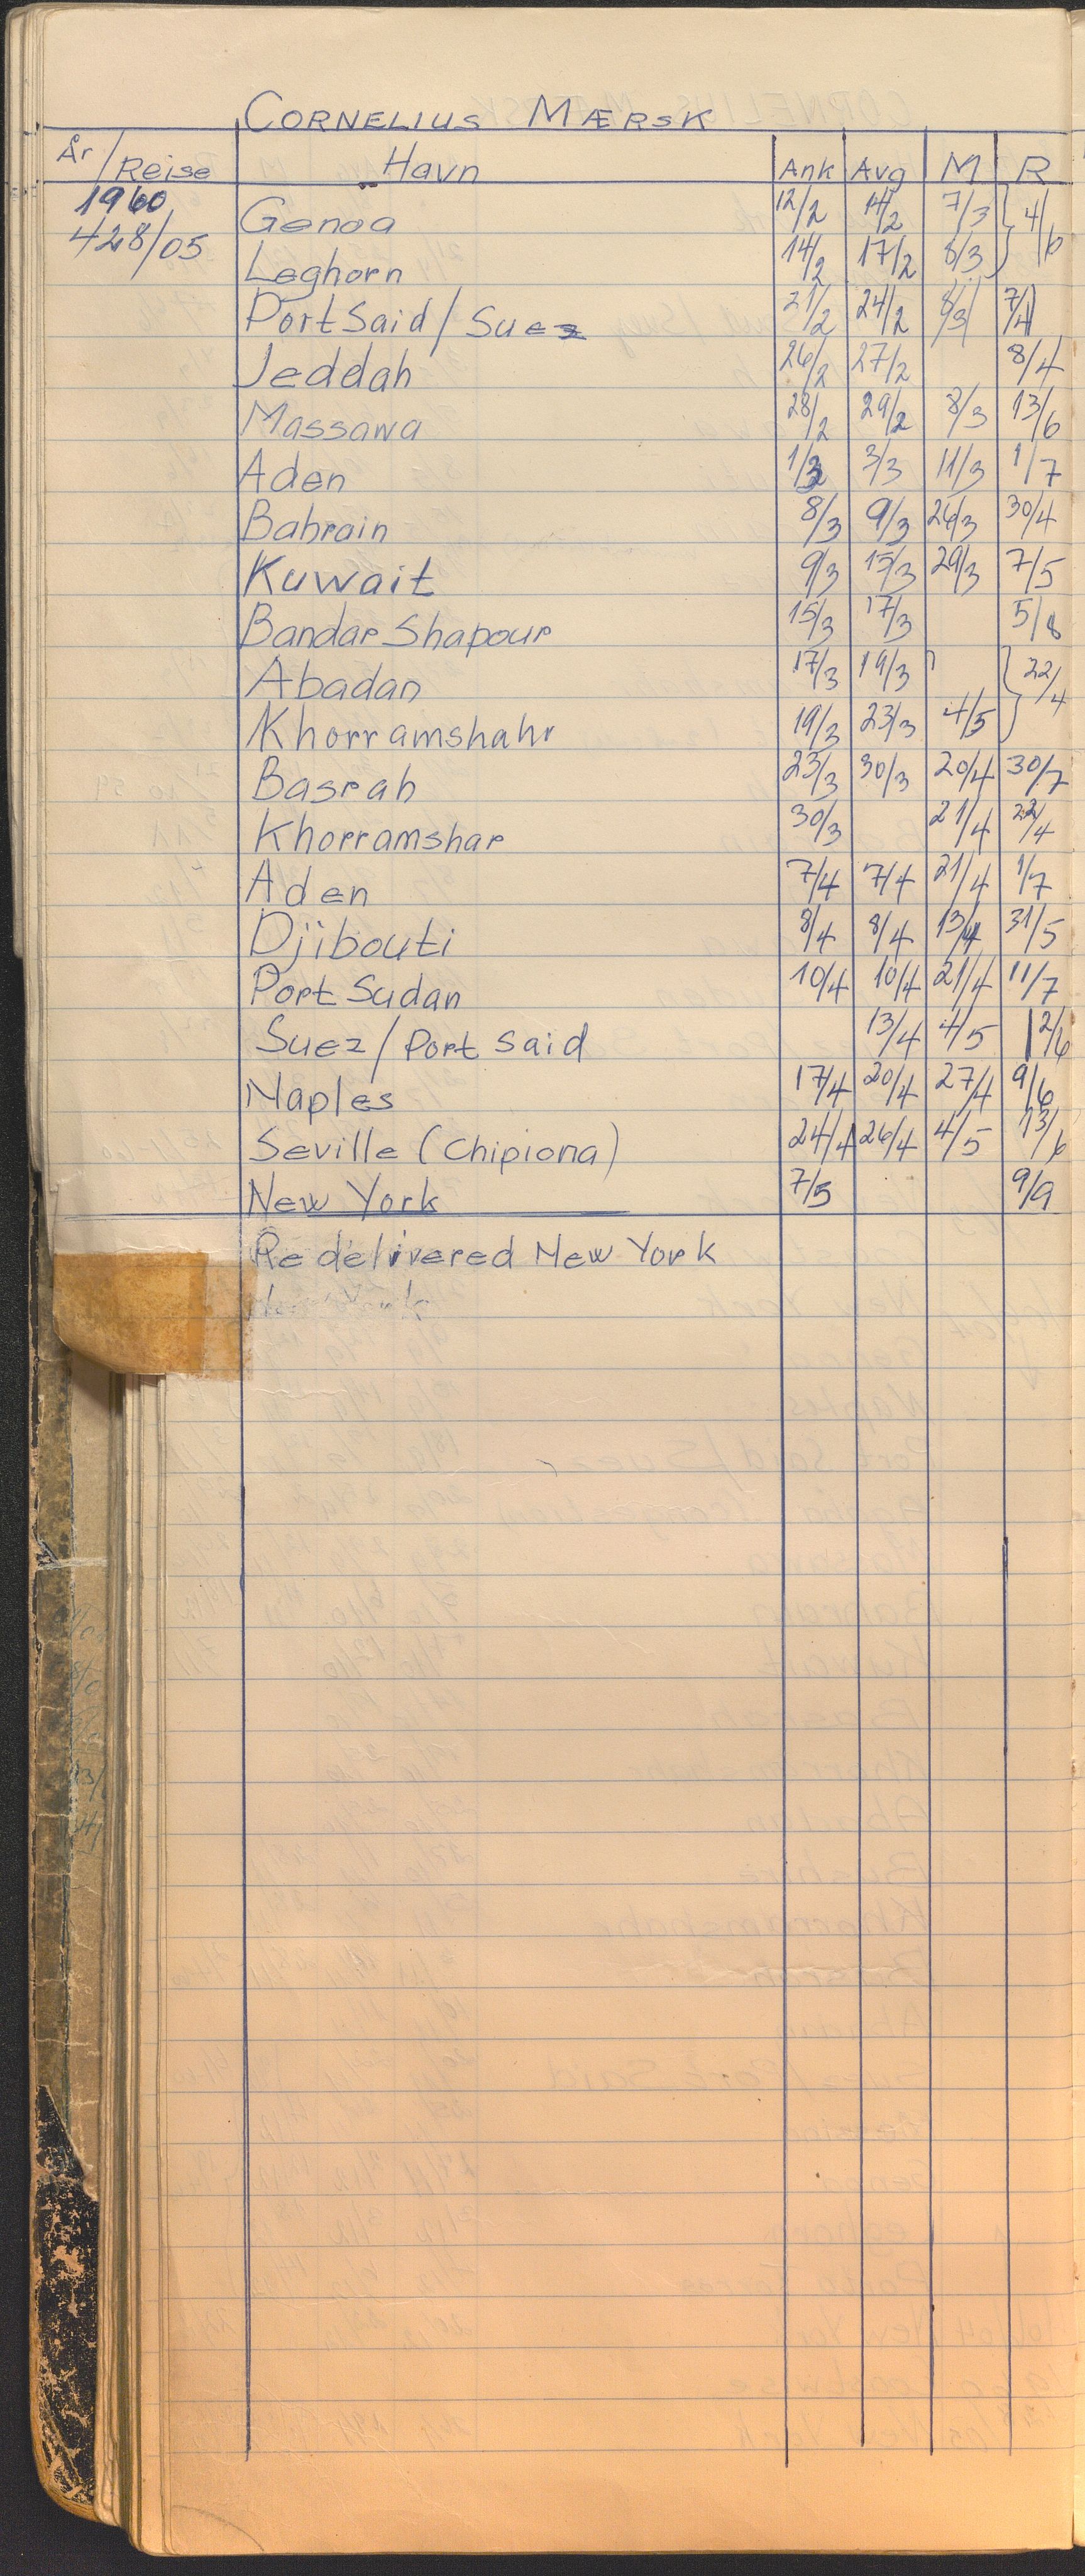 CORNELIUS MÆRSK
År / Reise Havn Ank Avg M R
1960 Genoa 12/2 14/2 7/3 } 4/6
428/05 Leghorn 14/2 17/2 8/3
Port Said / Suez 21/2 24/2 8/3 7/4
Jeddah 26/2 27/2 8/4
Massawa 28/2 29/2 8/3 13/6
Aden 1/3 3/3 11/3 1/7
Bahrain 8/3 9/3 26/3 30/4
Kuwait 9/3 15/3 29/3 7/5
Bandar Shapour 15/3 17/3 5/8
Abadan 17/3 19/3 } 22/4
Khorramshahr 19/3 23/3 4/5
Basrah 23/3 30/3 20/4 30/7
Khorramshar 30/3 21/4 22/4
Aden 7/4 7/4 21/4 1/7
Djibouti 8/4 8/4 13/4 31/5
Port Sudan 10/4 10/4 21/4 11/7
Suez / Port Said 13/4 4/5 12/6
Naples 17/4 20/4 27/4 9/6
Seville (Chipiona) 24/4 26/4 4/5 13/6
New York 7/5 9/9
Redelivered New York